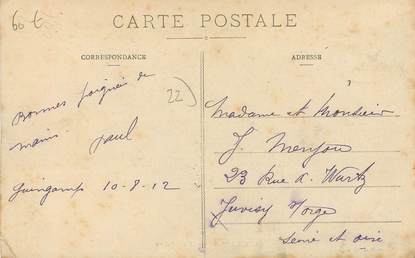 60 €
CARTE POSTALE
CORRESPONDANCE
ADRESSE
Bonnes poignées de
mains. Paul
22
Guingamp 10-8-12
Madame et Monsieur
J. Menjou
23 Rue A. Wurtz
Juvisy s/Orge
Seine et Oise